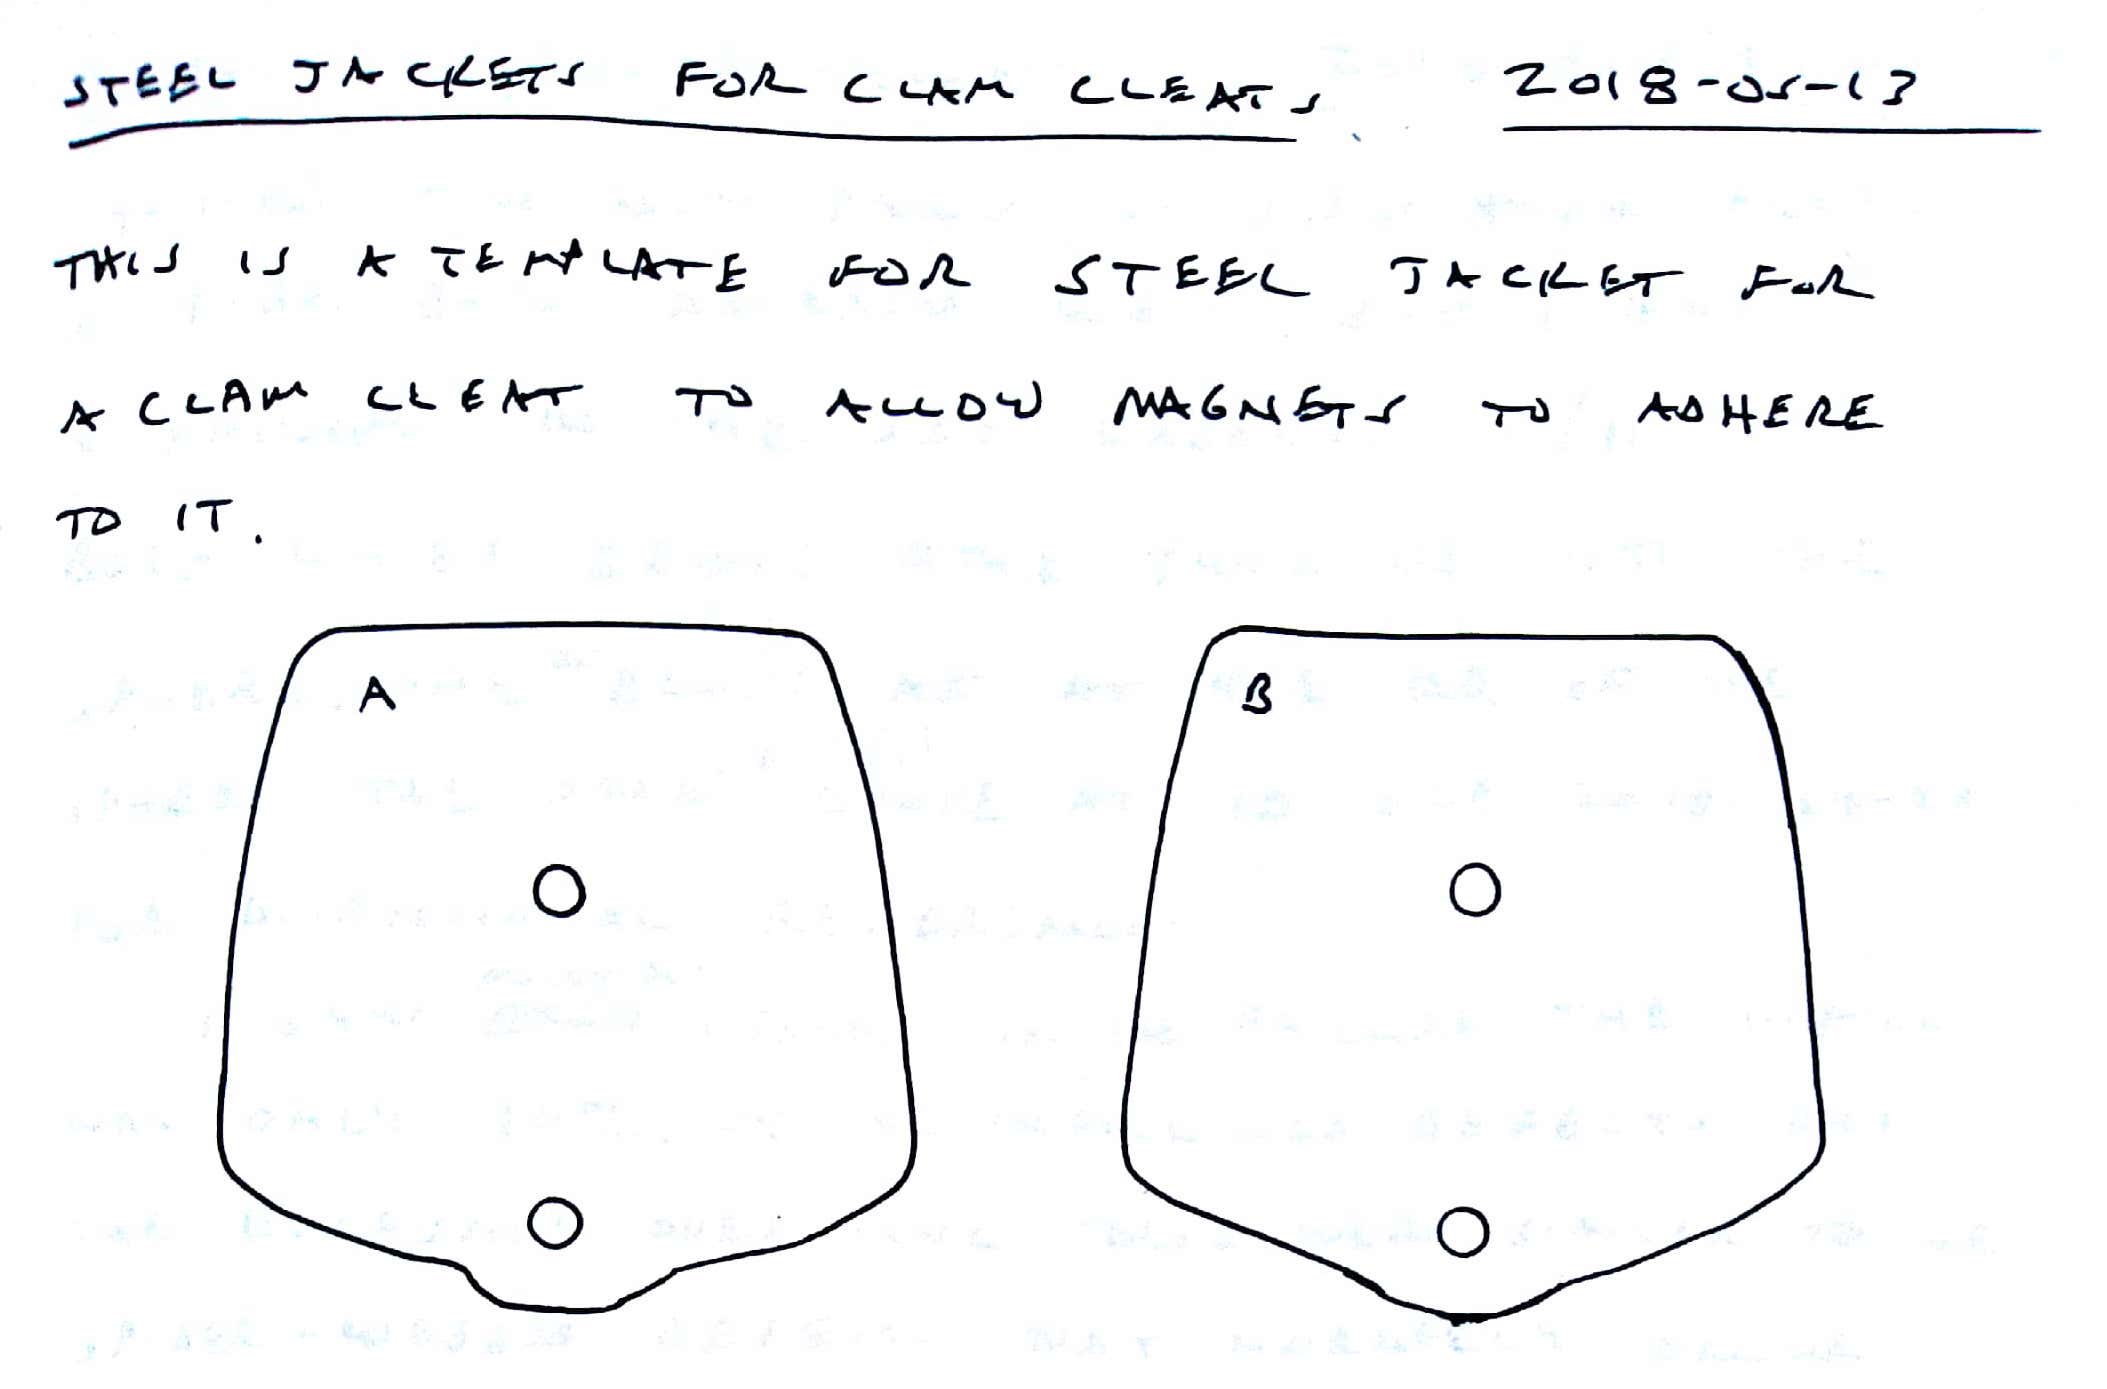 STEEL JACKETS FOR CLAM CLEATS 2018-05-13
THIS IS A TEMPLATE FOR STEEL JACKET FOR
A CLAM CLEAT TO ALLOW MAGNETS TO ADHERE
TO IT.
A B